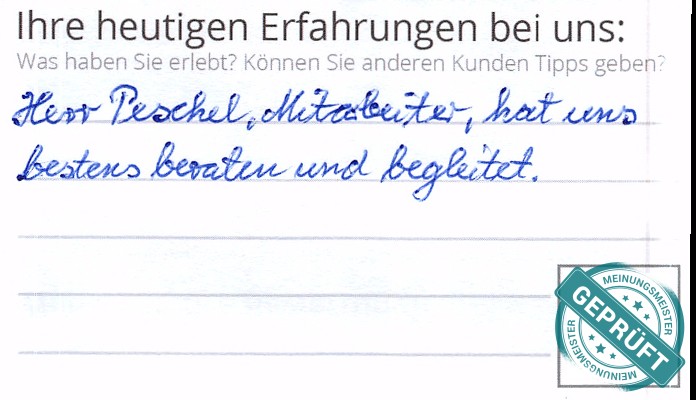 Ihre heutigen Erfahrungen bei uns:
Was haben Sie erlebt? Können Sie anderen Kunden Tipps geben?
Herr Peschel, Mitarbeiter, hat uns
bestens beraten und begleitet.
MEINUNGSMEISTER
GEPRÜFT
MEINUNGSMEISTER